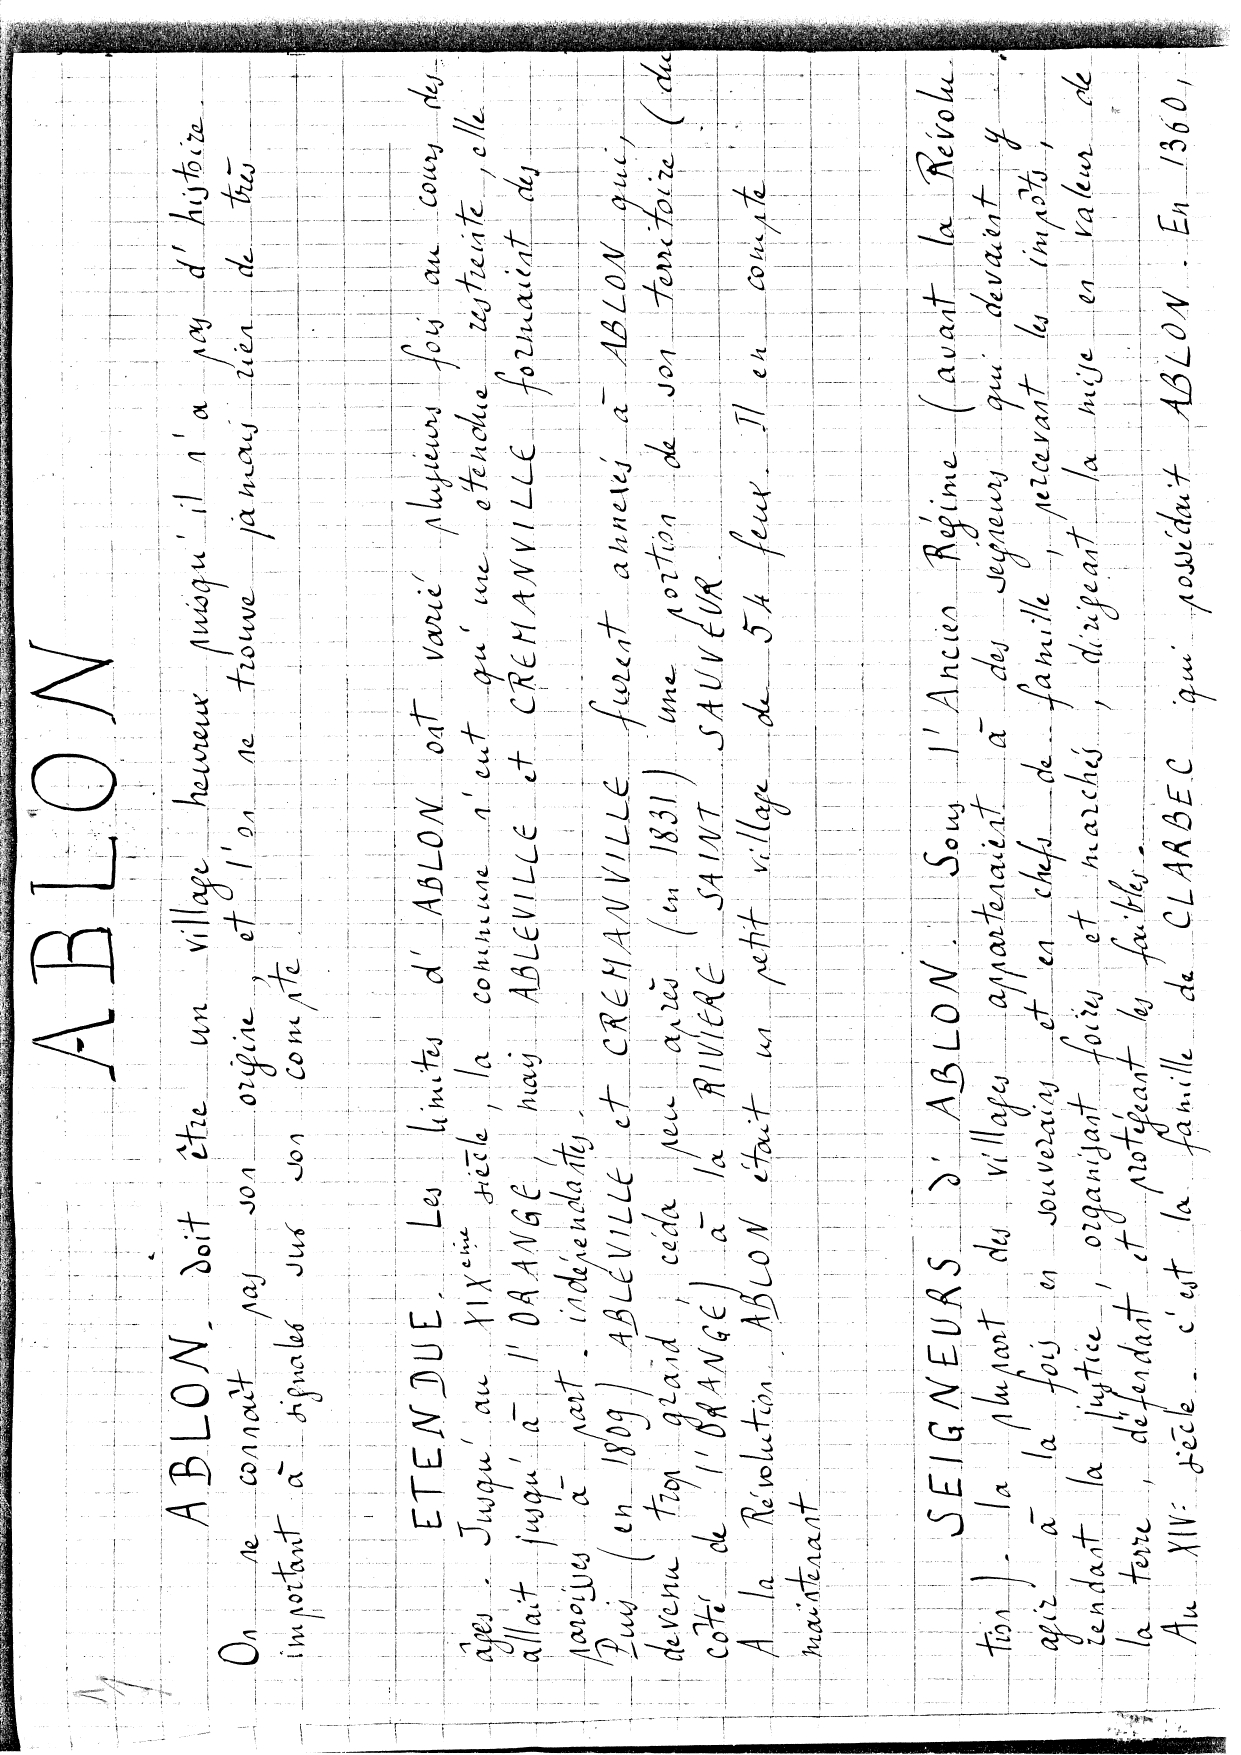 ABLON
ABLON. doit être un village heureux puisqu'il n'a pas d'histoire.
On ne connaît pas son origine, et l'on ne trouve jamais rien de très
important à signaler sur son compte.
ETENDUE. Les limites d'ABLON ont varié plusieurs fois au cours des
âges. Jusqu'au XIXeme siècle, la commune n'eut qu'une étendue restreinte, elle
allait jusqu'à l'ORANGE, mais ABLEVILLE et CREMANVILLE formaient des
paroisses à part. indépendantes.
Puis (en 1809) ABLEVILLE et CREMANVILLE furent annexés à ABLON qui,
devenu trop grand, céda peu après (en 1831) une portion de son territoire (du
côté de l'ORANGE) à la RIVIERE SAINT SAUVEUR.
A la Révolution ABLON était un petit village de 54 feux. Il en compte
maintenant
SEIGNEURS d'ABLON. Sous l'Ancien Régime (avant la Révolu
tion). la plupart des villages appartenaient à des seigneurs qui devaient y
agir à la fois en souverains et en chefs de famille, percevant les impôts,
rendant la justice, organisant foires et marchés, dirigeant la mise en valeur de
la terre, défendant et protégeant les faibles.
Au XIV: siècle. c'est la famille de CLARBEC qui possédait ABLON. En 1360,